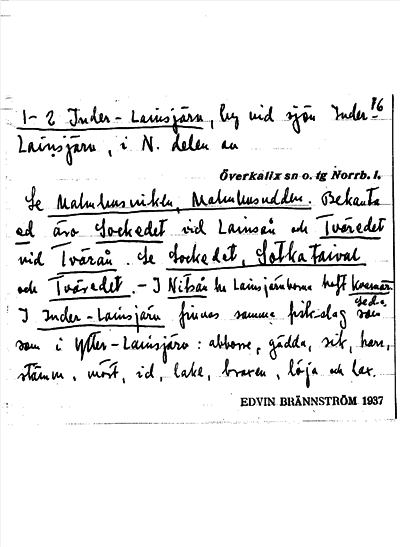 16
1-2 Inder-Lainsjärn, by vid sjön Inder-
Lainsjärn, i N. delen av
Överkalix sn o. tg Norrb. l.
Se Malmhusviken, Malmhusudden. Bekanta
ed äro Sockedet vid Lainsån och Tväredet
vid Tvärån. Se Sockedet, Sotkataival
och Tväredet. - I Nitsån ha Lainsjärnborna haft kvarnar
I Inder-Lainsjärn finnas samma fiskslag som
som i Ytter-Lainsjärn: abborre, gädda, sik, harr,
stämm, mört, id, lake, braxen, löja och lax.
EDVIN BRÄNNSTRÖM 1937